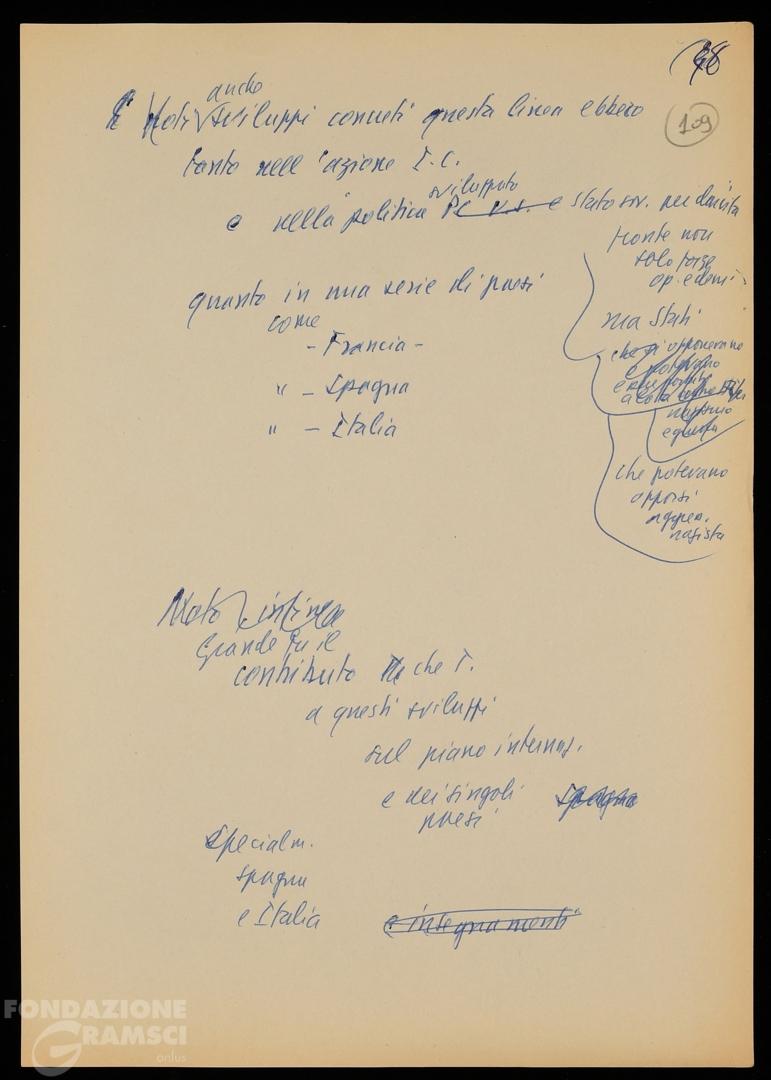 109
anche
E' Noti sviluppi concreti questa linea ebbero
tanto nell'azione I.C.
sviluppata
e nella politica PC U.S. e stato sov. per dar vita
fronte non
solo forze
op. e dem.
quanto in una serie di paesi
come
- Francia -
" - Spagna
" - Italia
ma Stati
che si opponevano
che potevano
opporsi
aggres.
nazista
Noto
Grande fu il
contributo che T.
a questi sviluppi
sul piano internaz.
e dei singoli Spagna
paesi
Specialm.
Spagna
e Italia e insegnamenti
FONDAZIONE
GRAMSCI
onlus